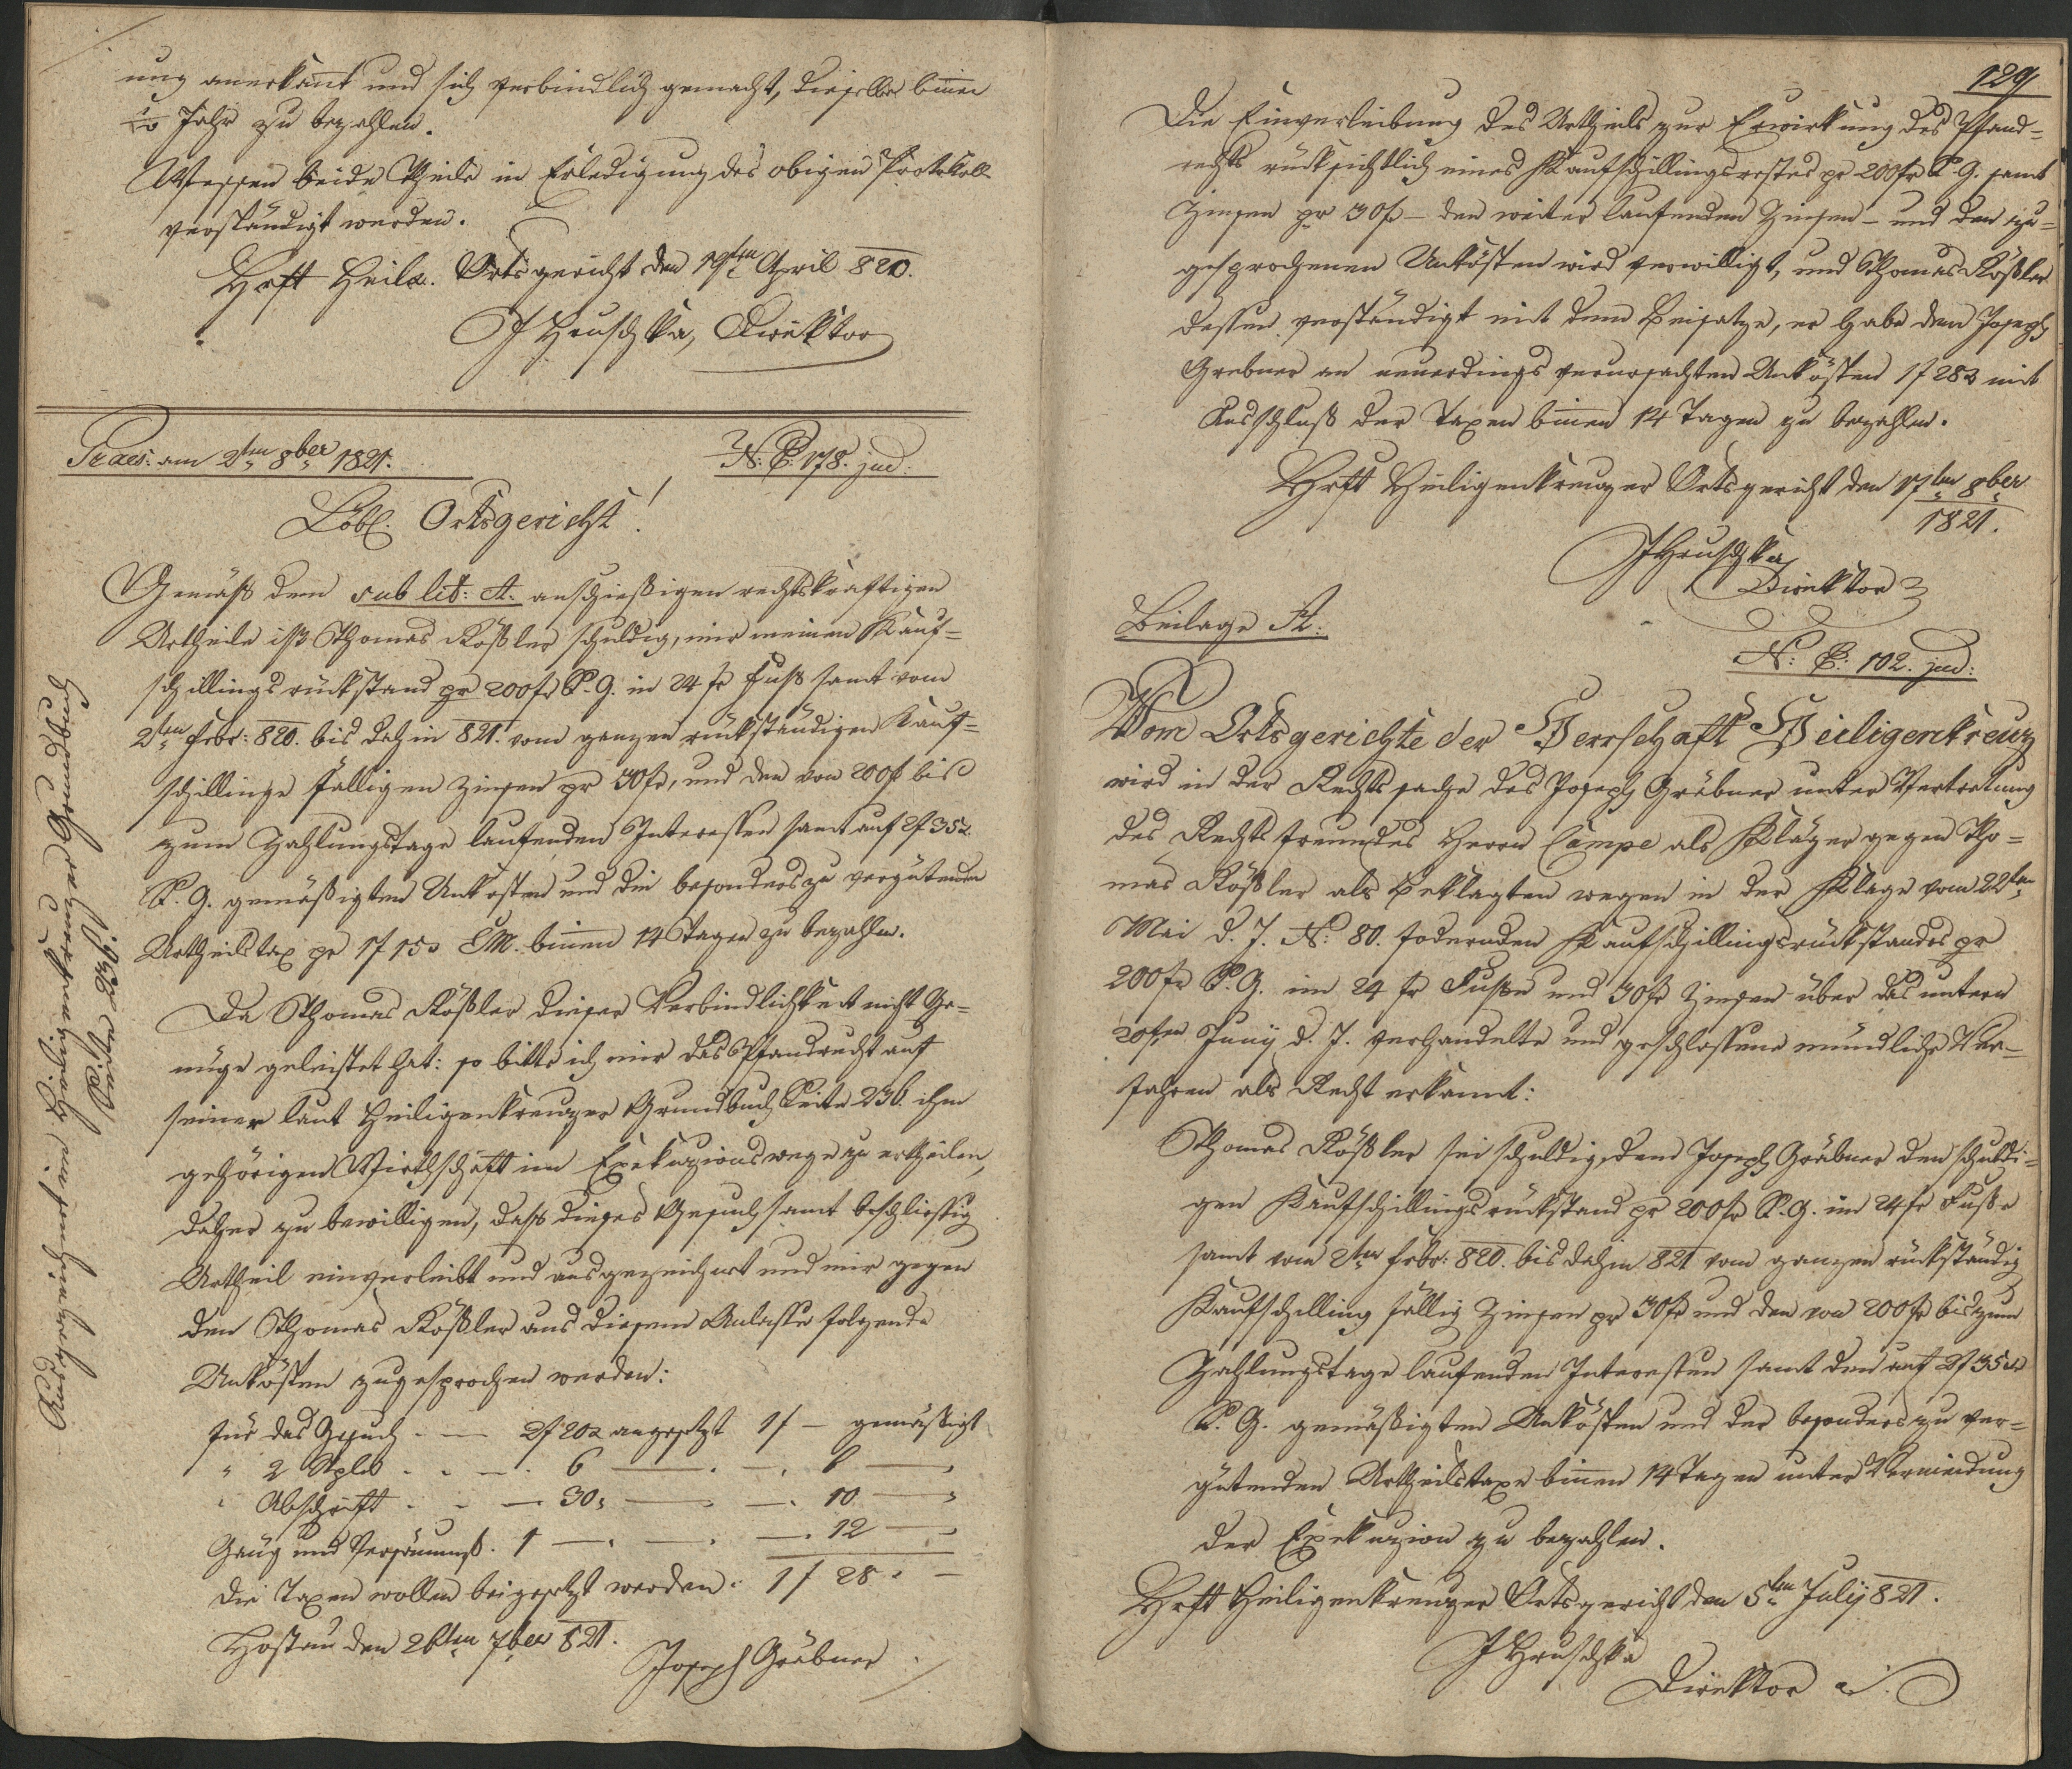 ung anerkañt und sich verbindlich gemacht, dieselben biñen
Jahr zu bezahlen.
Wessen beide Theile in Erledigung des obigen Protokolls
verständigt werden.
Hrft Heilx. Ortsgericht den 19ten April 820.
J Hruschka, Direktor
Praes: am 2ten 8ber 1821.
N: E: 178. jud:
Löbl. Ortsgericht!
Gemäß dem sub lit: A. anschießigen rechtskräftigen
Urtheile ist Thomas Rößler schuldig, mir meinen Kauf=
schillingsrückstand pr 200 fr K. G. in 24 fr Fuß samt vom
2ten Febr: 820. bis dahin 821. vom ganzen rückständigen Kauf=
schillinge fälligen Zinsen pr 30 fr, und den von 200 fr bis
zum Zahlungstage laufenden Interessen samt auf 2 f 35 x
K. G. gemäßigten Unkosten und die besonders zu vergütende
Urtheilstax pr 1 f 15 x CM. biñen 14 Tagen zu bezahlen.
Da Thomas Rößler dieser Verbindlichkeit nicht Ge=
nüge geleistet hat: so bitte ich mir das Pfandrecht auf
seiner laut Heiligenkreuzer Grundbuch Seite 236. ihm
gehörigen Wirthschaft im Exekuzionswege zu ertheilen,
daher zu bewilligen, daß dieses Gesuch samt beschließig
Urtheil einverleibt und ausgezeichnet und mir gegen
den Thomas Rößler aus diesem Anlasse folgende
Unkösten zugesprochen werden:
für das Gesuch . — 2 f 20 x angesetzt 1 f — gemäßigt
" 2 Stpl . . — . 6 — . — . 6 —
" Abschrift . . — . 30 " — " — . 10 — "
Gäng und Versäumniß . 1 — . — . — . 12 — "
Die Taxen wollen beigesetzt werden. 1 f 28 . —
Hostau den 26ten 7ber 821.
Joseph Gräbner
129
Die Einverleibung des Urtheils zur Erwirkung des Pfand=
rechts rücksichtlich eines Kaufschillingsrestes pr 200 fr K. G. samt
Zinsen pr 30 fr — den weiter laufenden Zinsen — und den zu=
gesprochenen Unkösten wird bewilligt, und Thomas Rößler
dessen verständigt mit dem Beisatze, er habe dem Joseph
Grebner an neuerdings verursachten Unkösten 1 f 28 x mit
Ausschluß der Taxen biñen 14 Tagen zu bezahlen.
Hrft Heiligenkreuzer Ortsgericht den 17ten 8ber
1821.
J Hruschka
Direktor
Beilage A.
N: E: 102. jud:
Vom Ortsgerichte der Herrschaft Heiligenkreuz
wird in der Rechtssache des Joseph Gräbner unter Vertretung
des Rechtsfreundes Herrn Campe als Kläger gegen Tho=
mas Rößler als Beklagten wegen in der Klage vom 22ten
Mai d. J. N: 80. fodernden Kaufschillingsrückstandes pr
200 fr K. G. im 24 fr Fuße und 30 fr Zinsen über das untern
20ten Juny d. J. verhandelte und geschlossene mündliche Ver=
fahren als Recht erkannt:
Thomas Rößler sei schuldig, dem Joseph Gräbner den schuldi=
gen Kaufschillingsrückstand pr 200 fr K. G. im 24 fr Fuße
samt vom 2ten Febr: 820. bis dahin 821 vom ganzen rückständig
Kaufschilling fällig Zinsen pr 30 fr und den von 200 fr bis zum
Zahlungstage laufenden Interessen samt den auf 2 f 35 x
K. G. gemäßigten Unkösten und der besonders zu ver=
gütenden Urtheilstaxe biñen 14 Tagen unter Vermeidung
der Exekuzion zu bezahlen.
Hrft Heiligenkreuzer Ortsgericht den 5ten July 821.
J Hruschka
Direktor